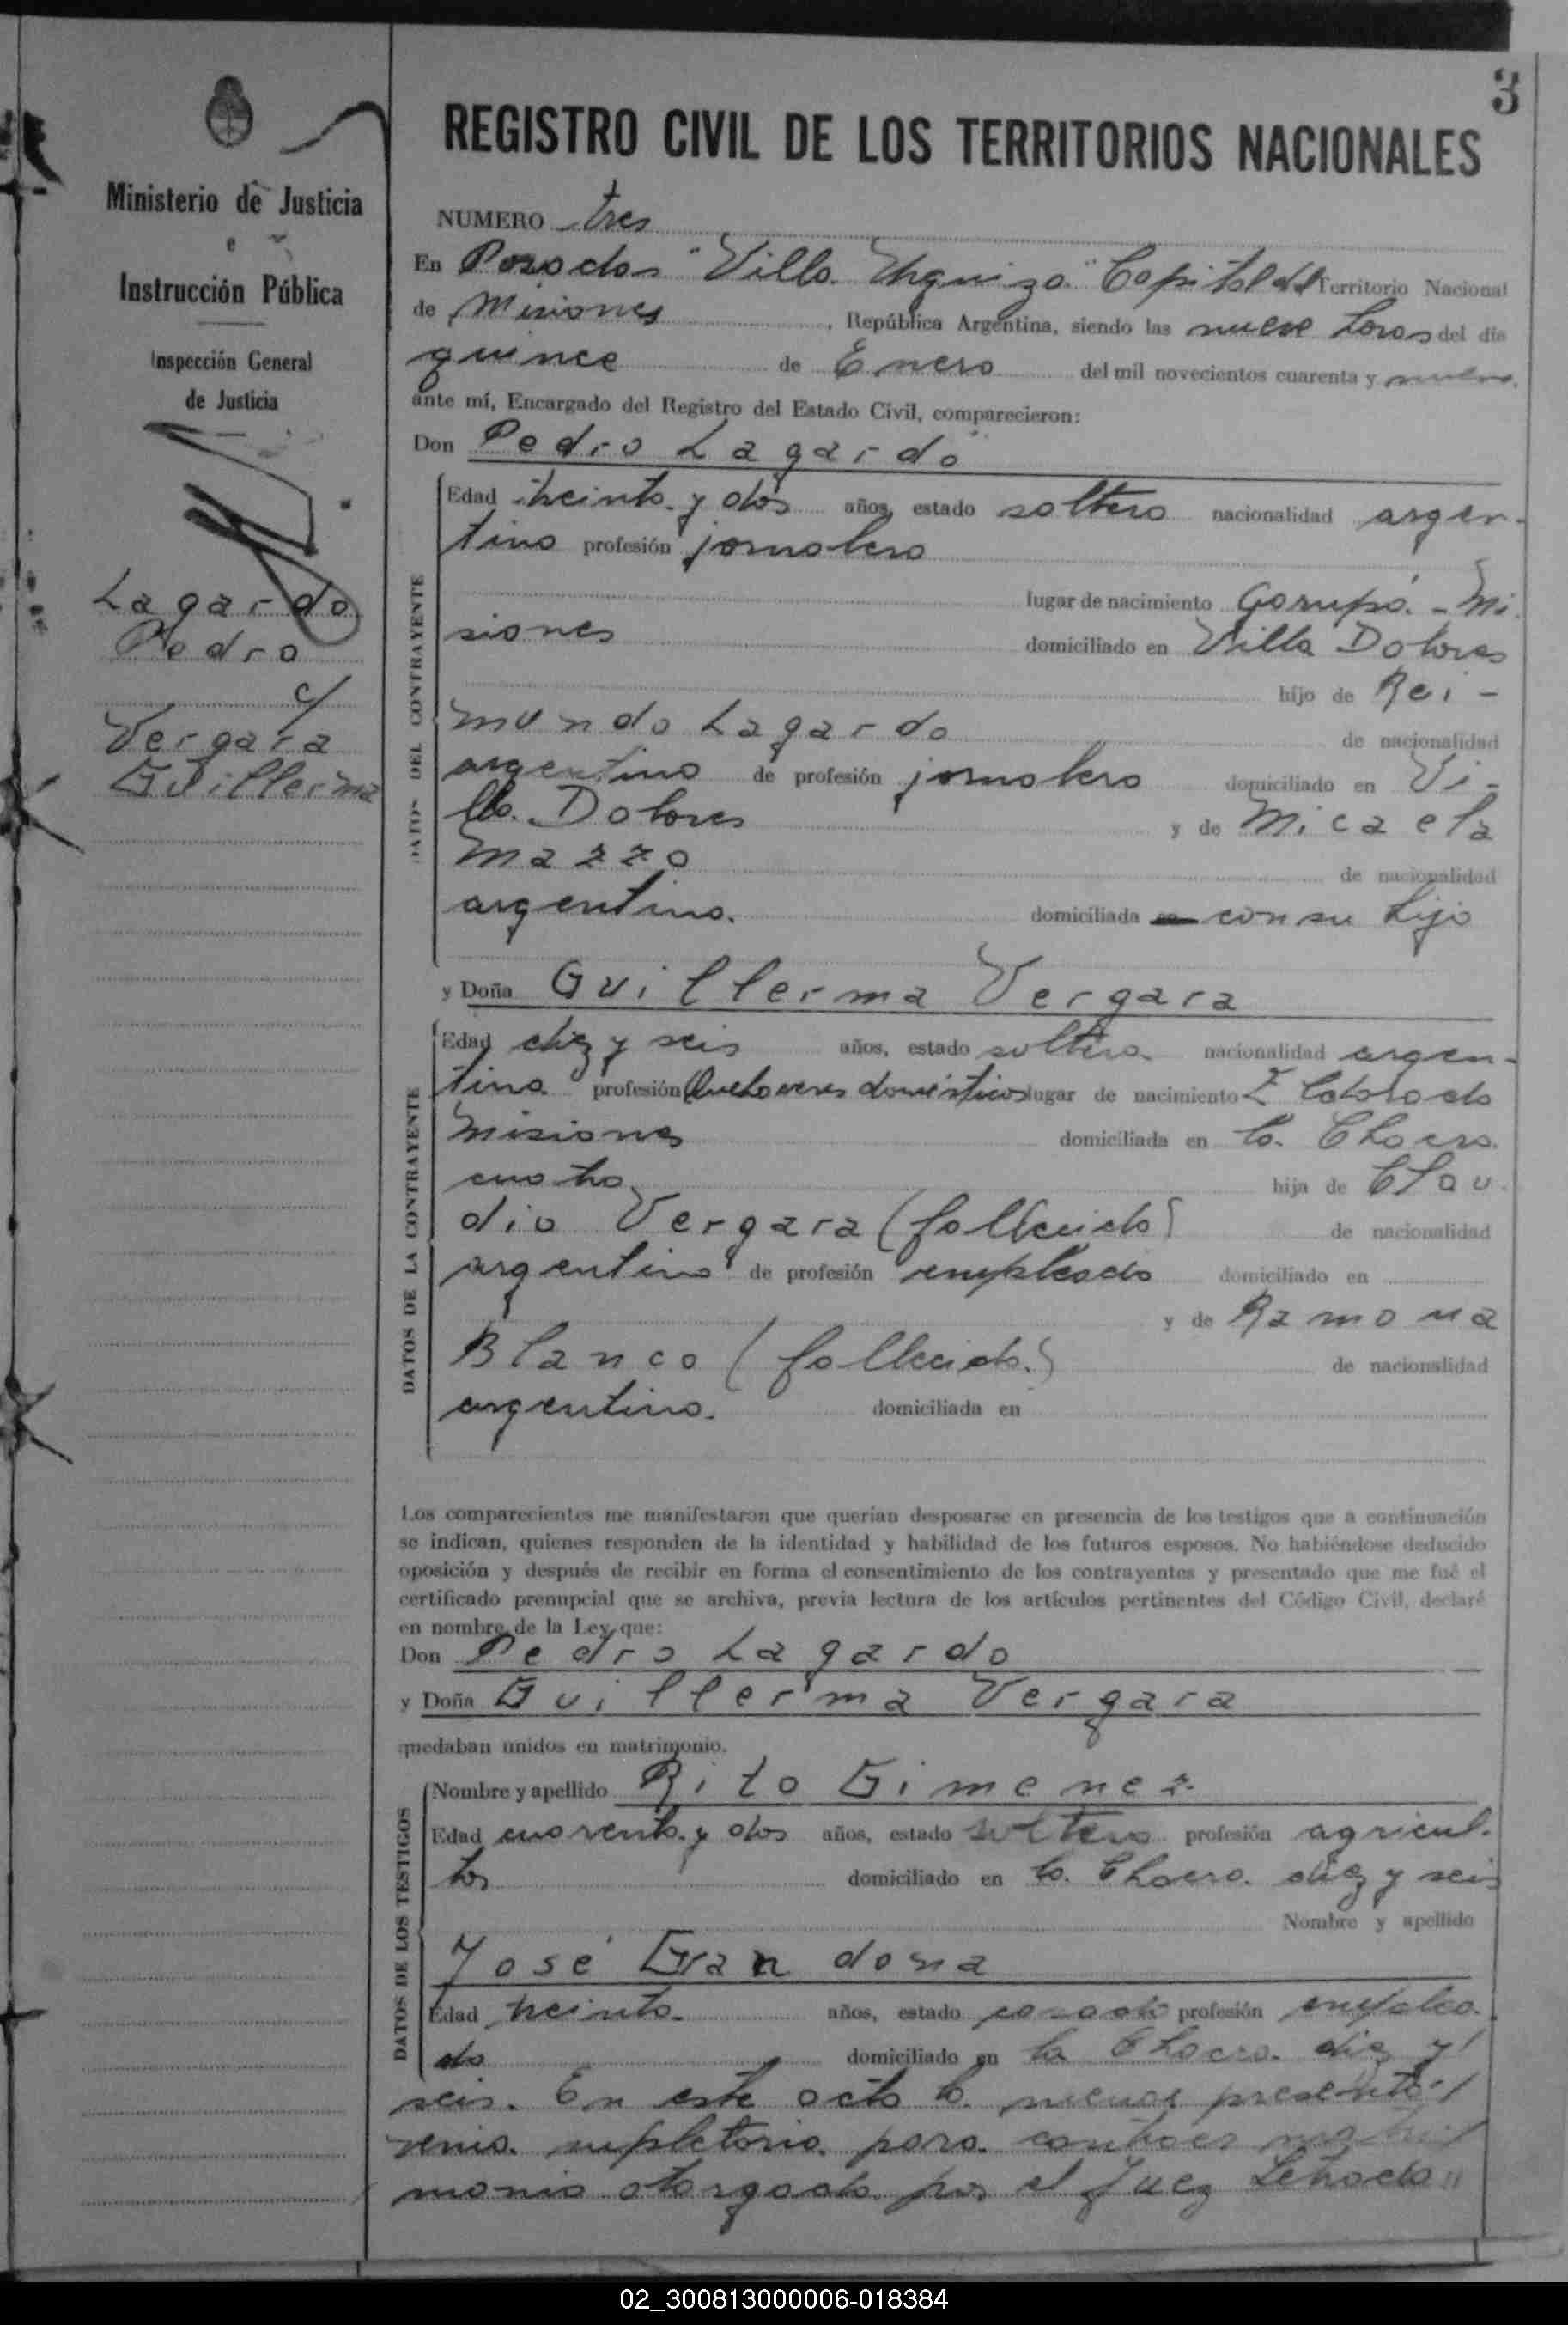 3
Ministerio de Justicia
e
Instrucción Pública
Inspección General
de Justicia
Lagardo
Pedro
c/
Vergara
Guillerma
REGISTRO CIVIL DE LOS TERRITORIOS NACIONALES
NUMERO tres
En Posadas "Villa Urquiza" Capital del Territorio Nacional
de Misiones, República Argentina, siendo las nueve horas del día
quince de Enero del mil novecientos cuarenta y nueve
ante mí, Encargado del Registro del Estado Civil, comparecieron:
Don Pedro Lagardo
DATOS DEL CONTRAYENTE
Edad treinta y dos años, estado soltero nacionalidad argen-
tino profesión jornalero
lugar de nacimiento Garupá - Mi
siones domiciliado en Villa Dolores
hijo de Rei-
mundo Lagardo de nacionalidad
argentino de profesión jornalero domiciliado en Vi-
lla Dolores y de Micaela
Mazzo de nacionalidad
argentina. domiciliada con su hijo
y Doña Guillerma Vergara
DATOS DE LA CONTRAYENTE
Edad diez y seis años, estado soltera nacionalidad argen-
tina profesión Quehaceres domésticos lugar de nacimiento
Misiones domiciliada en la Chacra
cuatro hija de Clau
dio Vergara (fallecido) de nacionalidad
argentino de profesión empleado domiciliado en
y de Ramona
Blanco (fallecida) de nacionalidad
argentina. domiciliada en
Los comparecientes me manifestaron que querían desposarse en presencia de los testigos que a continuación
se indican, quienes responden de la identidad y habilidad de los futuros esposos. No habiéndose deducido
oposición y después de recibir en forma el consentimiento de los contrayentes y presentado que me fué el
certificado prenupcial que se archiva, previa lectura de los artículos pertinentes del Código Civil, declaré
en nombre de la Ley que:
Don Pedro Lagardo
y Doña Guillerma Vergara
quedaban unidos en matrimonio.
DATOS DE LOS TESTIGOS
Nombre y apellido Rito Gimenez
Edad cuarenta y dos años, estado soltero profesión agricul-
tor domiciliado en la Chacra diez y seis
Nombre y apellido
José Grandona
Edad treinta años, estado casado profesión emplea
do domiciliado en la Chacra diez y
seis. En este acto la menor presenta
venia supletoria para contraer matri
monio otorgada por el Juez Letrado
02_300813000006-018384